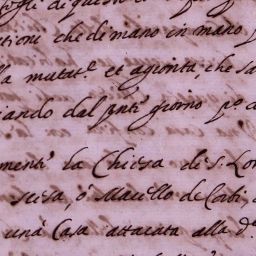 di questo
ttioni che di mano in mano p
la mutat.e et agionta, che sa
iando dal p.nte giorno p.o d
ment.e la Chiesa di S. Lor
scesa, ò Macello de Corbi,
una Casa attacata alla d.a